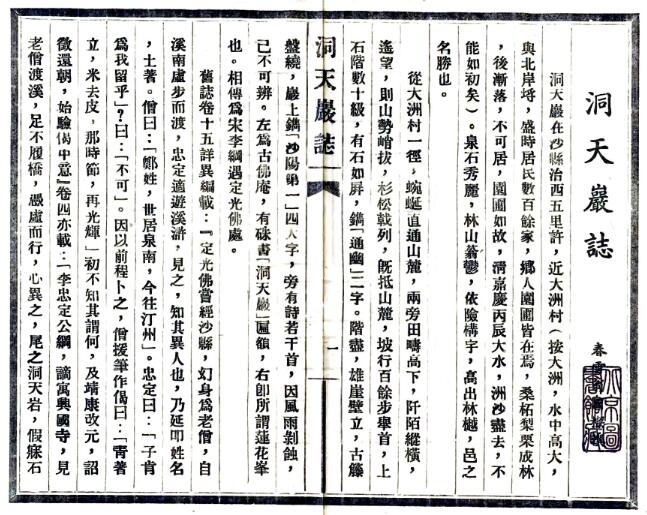 洞天巖誌
洞天巖在沙縣治西五里許，近大洲村（按大洲，水中高大，
與北岸埒，盛時居民數百餘家，鄉人園圃皆在焉，桑柘梨栗成林
，後漸落，不可居，園圃如故，清嘉慶丙辰大水，洲沙盡去，不
能如初矣）。泉石秀麗，林山蓊鬱，依險構宇，高出林樾，邑之
名勝也。
從大洲村一徑，蜿蜒直通山麓，兩旁田疇高下，阡陌縱橫，
遙望，則山勢峭拔，杉松戟列，既抵山麓，坡行百餘步舉首，上
石階數十級，有石如屏，鐫「通幽」二字。階盡，雄崖壁立，古籐
洞天巖誌
一
盤繞，巖上鐫「沙陽第一」四大字，旁有詩若干首，因風雨剝蝕，
已不可辨。左爲古佛庵，有硃書「洞天巖」匾額，右卽所謂蓮花峯
也。相傳爲宋李綱遇定光佛處。
舊誌卷十五詳異編載：『定光佛嘗經沙縣，幻身爲老僧，自
溪南虛步而渡，忠定適遊溪滸，見之，知其異人也，乃延叩姓名
，土著。僧曰：「鄭姓，世居泉南，今往汀州」。忠定曰：「子肯
爲我留乎」？曰：「不可」。因以前程卜之，僧援筆作偈曰：「靑著
立，米去皮，那時節，再光輝」初不知其謂何，及靖康改元，詔
徵還朝，始驗偈中意』卷四亦載：「李忠定公綱，謫寓興國寺，見
老僧渡溪，足不履橋，憑虛而行，心異之，尾之洞天岩，假寐石